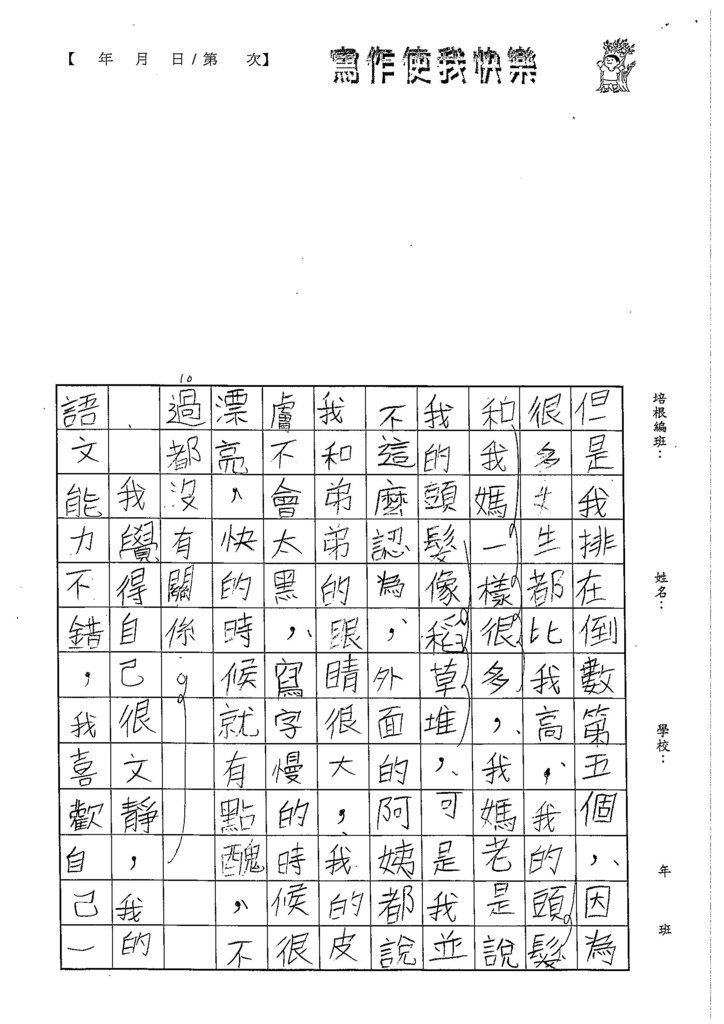 【 年 月 日/第 次】
寫作使我快樂
培根編班：
姓名：
學校：
年 班
但是我排在倒數第五個，因為
很多女生都比我高，我的頭髮
和我媽一樣很多，我媽老是說
我的頭髮像稻草堆，可是我並
不這麼認為，外面的阿姨都說
我和弟弟的眼睛很大，我的皮
膚不會太黑，寫字慢的時候很
漂亮，快的時候就有點醜，不
過都沒有關係。
、我覺得自己很文靜，我的
語文能力不錯，我喜歡自己一
10